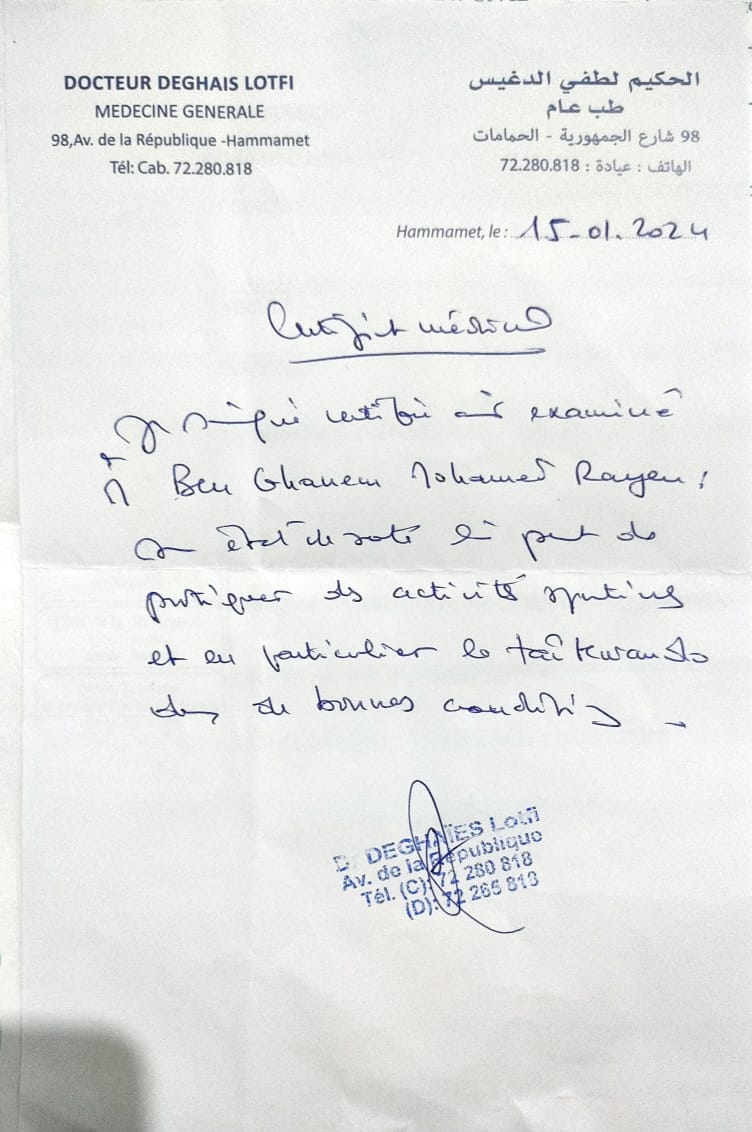 DOCTEUR DEGHAIS LOTFI
MEDECINE GENERALE
98,Av. de la République -Hammamet
Tél: Cab. 72.280.818
الحكيم لطفي الدغيس
طب عام
98 شارع الجمهورية - الحمامات
الهاتف : عيادة : 72.280.818
Hammamet, le : 15-01.2024
Certificat médical
Je soussigné certifie avoir examiné
Ben Ghanem Mohamed Rayen
son état de santé lui permet de
pratiquer des activités sportives
et en particulier le taïkwando
dans de bonnes conditions
Dr DEGHAIES Lotfi
Av. de la République
Tél. (C): 72 280 818
(D): 72 265 813